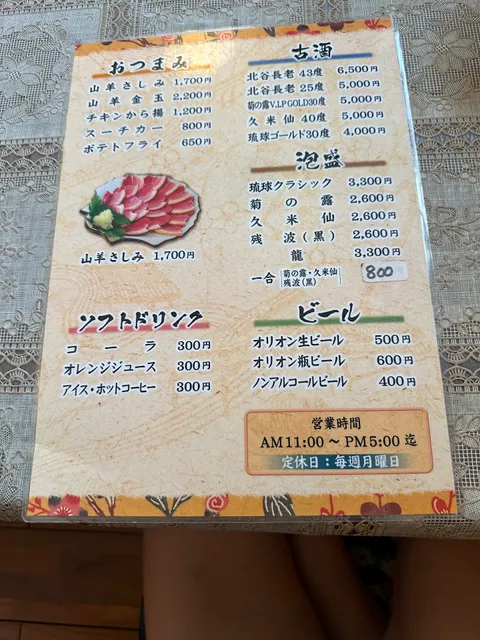 おつまみ
山羊さしみ 1,700円
山羊金玉 2,200円
チキンから揚 1,200円
スーチカー 800円
ポテトフライ 650円
山羊さしみ 1,700円
ソフトドリンク
コーラ 300円
オレンジジュース 300円
アイス・ホットコーヒー 300円
古酒
北谷長老 43度 6,500円
北谷長老 25度 5,000円
菊の露V.I.P GOLD30度 5,000円
久米仙 40度 5,000円
琉球ゴールド30度 4,000円
泡盛
琉球クラシック 3,300円
菊の露 2,600円
久米仙 2,600円
残波(黒) 2,600円
龍 3,300円
一合 菊の露・久米仙 800
残波(黒)
ビール
オリオン生ビール 500円
オリオン瓶ビール 600円
ノンアルコールビール 400円
営業時間
AM11:00 ~ PM5:00 迄
定休日:毎週月曜日